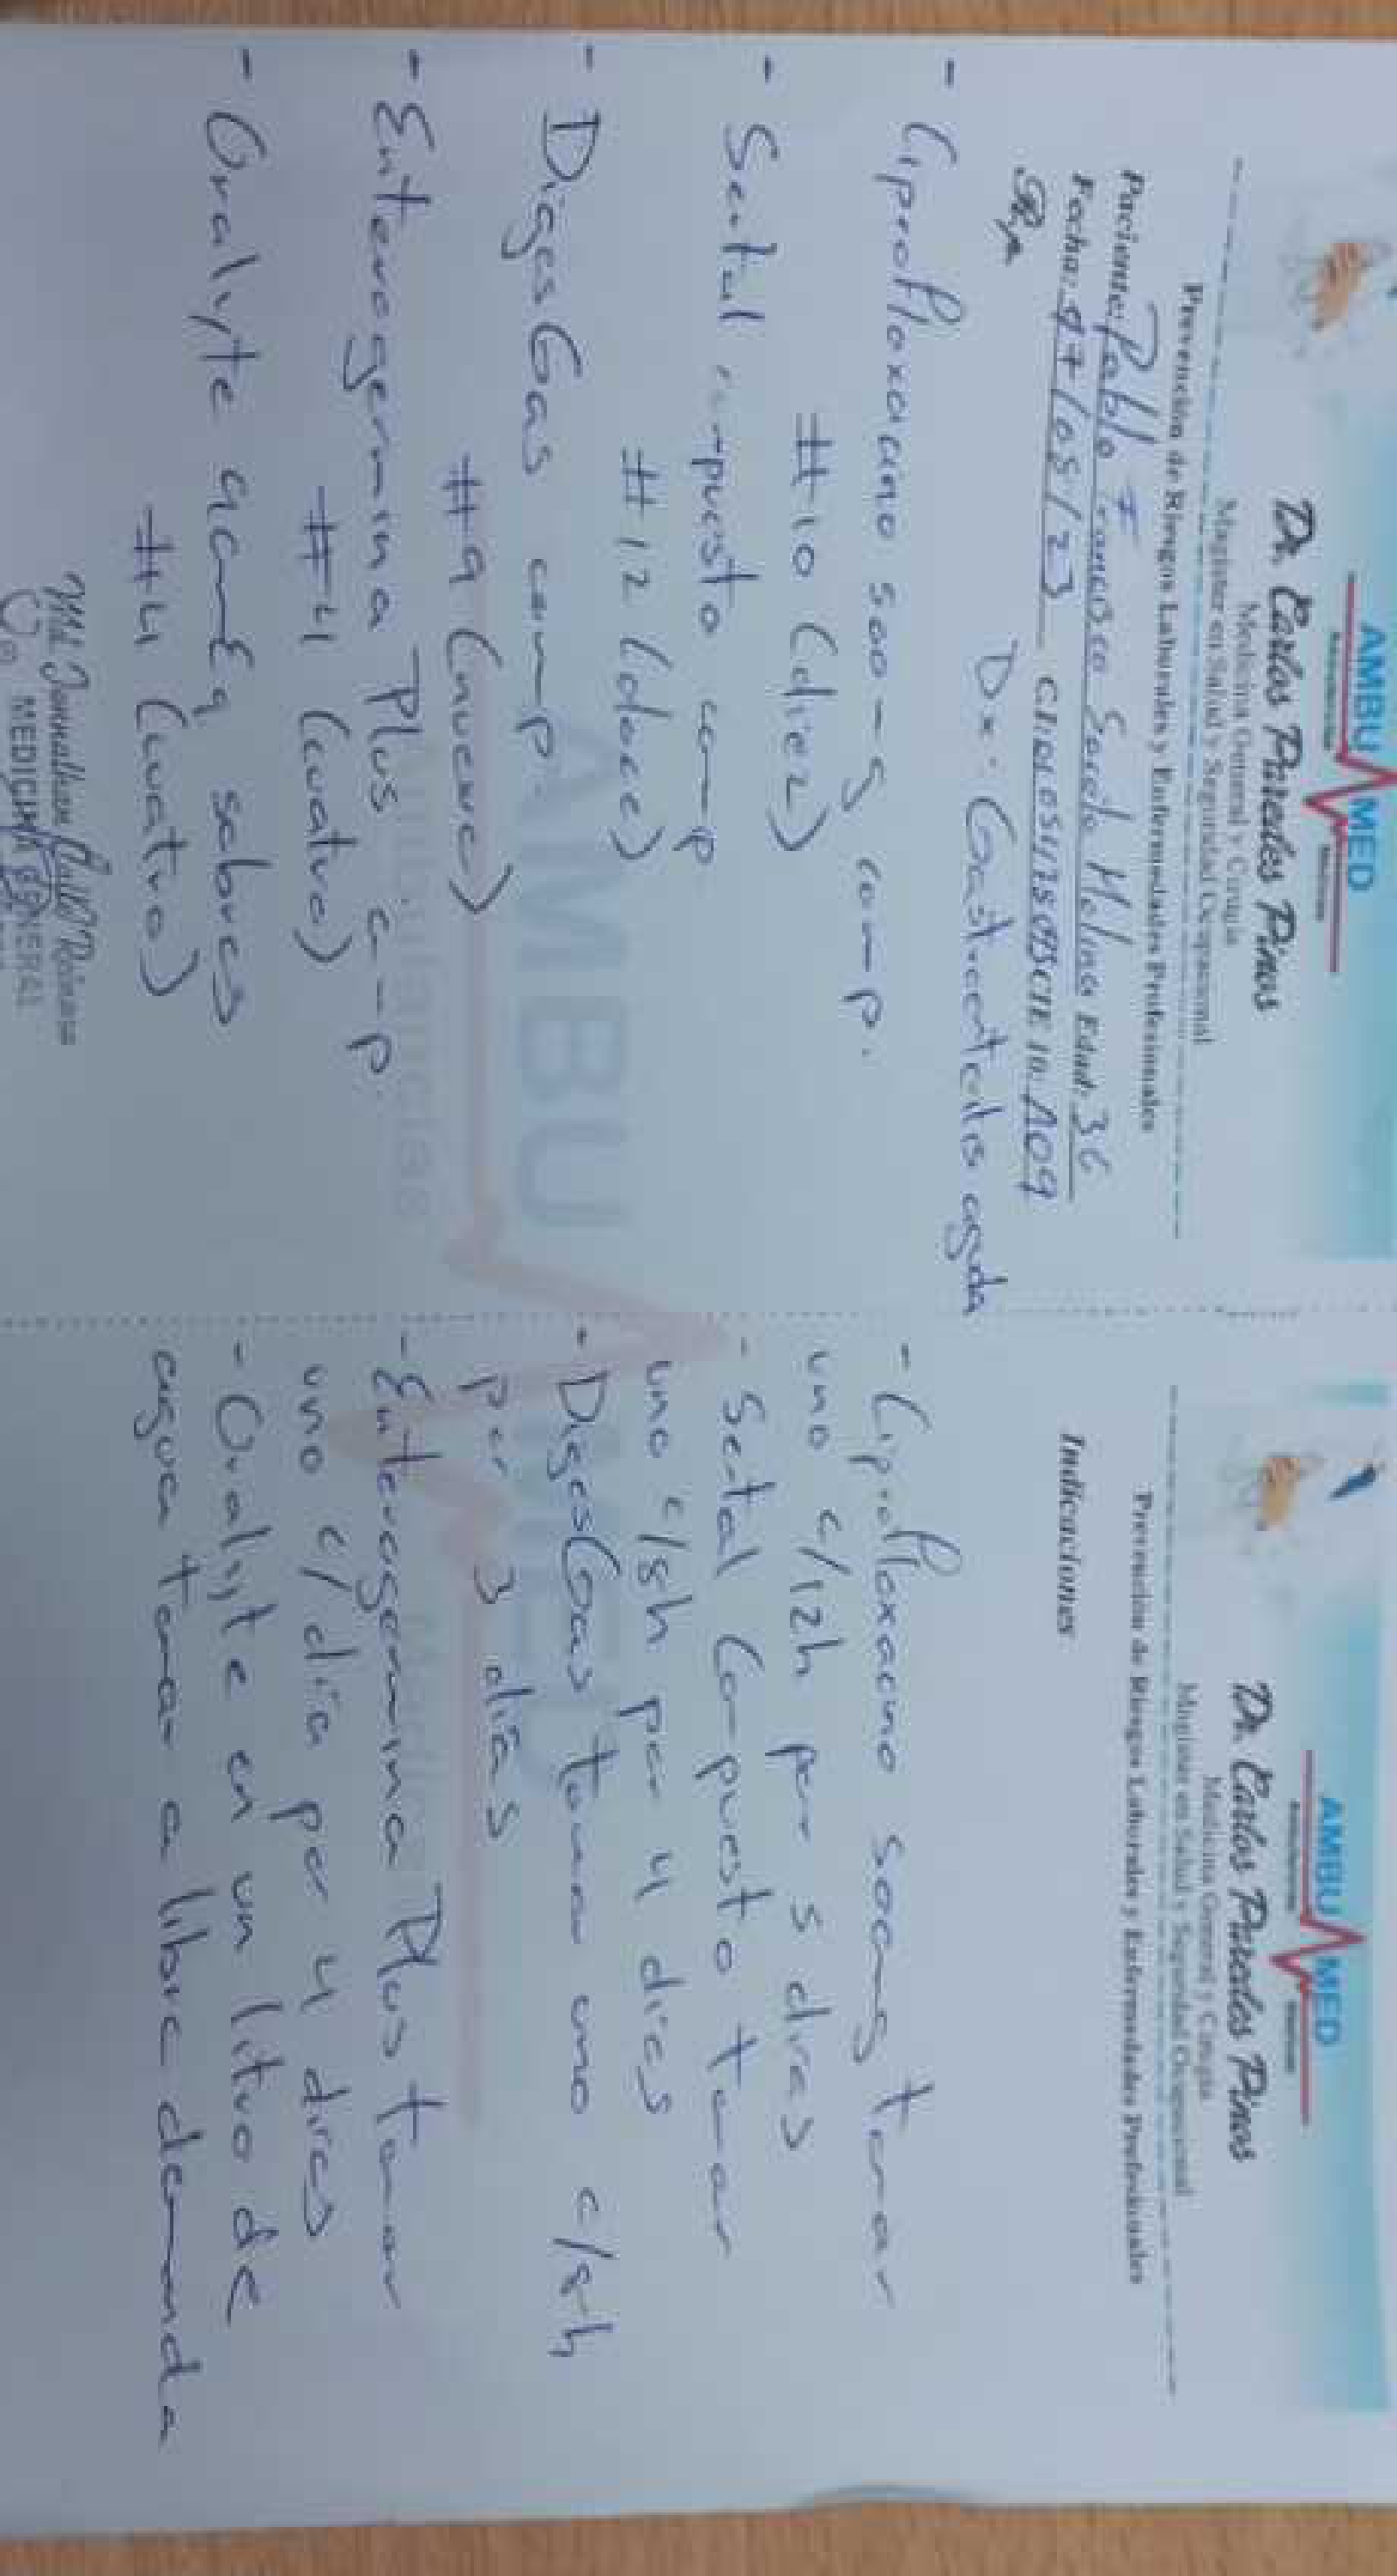 AMBU MED
Dr. Carlos Paredes Pinos
Medicina General y Cirugía
Magister en Salud y Seguridad Ocupacional
Prevención de Riesgos Laborales y Enfermedades Profesionales
Paciente: Pablo Francisco Molina Edad: 36
Fecha: /05/23 C.I: CIE 10: A09
Rp. Dx: Gastroenteritis aguda
- Ciprofloxacino 500mg comp.
#10 (diez)
- Sertal compuesto comp
#12 (doce)
- DigesGas comp.
#9 (nueve)
- Enterogermina Plus comp.
#4 (cuatro)
- Oralyte sobres
#4 (cuatro)
MEDICINA GENERAL
AMBU MED
Dr. Carlos Paredes Pinos
Medicina General y Cirugía
en Salud y Seguridad Ocupacional
Prevención de Riesgos Laborales y Enfermedades Profesionales
Indicaciones
- Ciprofloxacino 500mg tomar
uno c/12h por 5 dias
- Sertal Compuesto tomar
uno c/8h por 4 dias
- DigesGas tomar uno c/8h
por 3 días
- Enterogermina Plus tomar
uno c/día por 4 dias
- Oralyte en un litro de
agua tomar a libre demanda